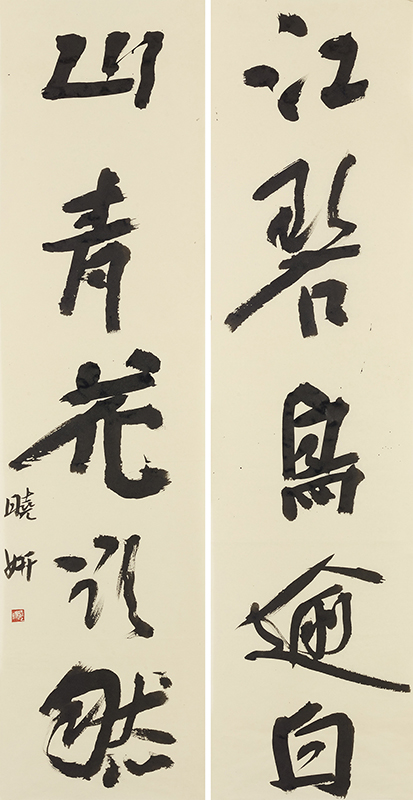 江碧鳥逾白
山青花欲然
曉妍